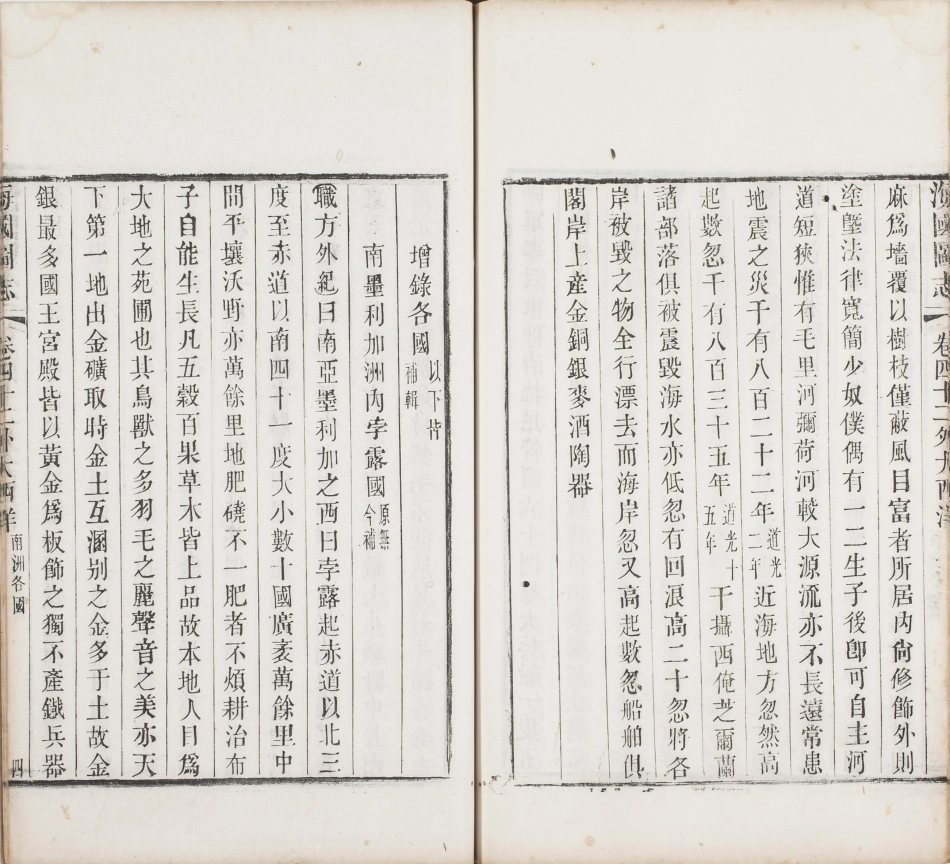 海國圖志
卷四十二外大西洋
麻爲墻覆以樹枝僅蔽風日富者所居內尙修飾外則
塗墍法律寬簡少奴僕偶有一二生子後卽可自主河
道短狹惟有毛里河彌荷河較大源流亦不長遠常患
地震之災于有八百二十二年道光二年近海地方忽然高
起數忽千有八百三十五年道光十五年干攝西俺芝爾蘭
諸部落俱被震毀海水亦低忽有回浪高二十忽將各
岸被毀之物全行漂去而海岸忽又高起數忽船舶俱
閣岸上産金銅銀麥酒陶器
增錄各國以下皆補輯
南墨利加洲內孛露國原無今補
職方外紀曰南亞墨利加之西曰孛露起赤道以北三
度至赤道以南四十一度大小數十國廣袤萬餘里中
間平壤沃野亦萬餘里地肥磽不一肥者不煩耕治布
子自能生長凡五穀百果草木皆上品故本地人目爲
大地之苑囿也其鳥獸之多羽毛之麗聲音之美亦天
下第一地出金礦取時金土互溷别之金多于土故金
銀最多國王宮殿皆以黃金爲板飾之獨不產鐵兵器
海國圖志
卷四十二外大西洋
南洲各國
四